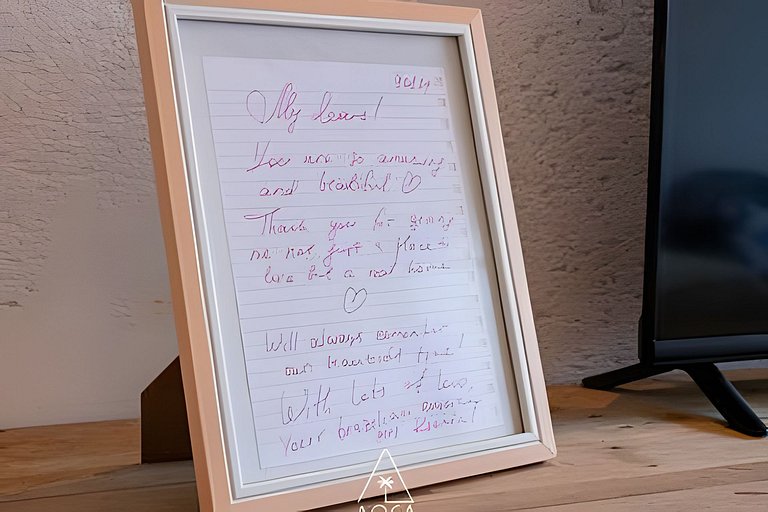 My loves!
You are so amazing
and beautiful ♡
Thank you for giving
us not just a place to
live but a real home
♡
Will always remember
our beautiful time!
With lots of love,
Your brazilian
girl
AOCA